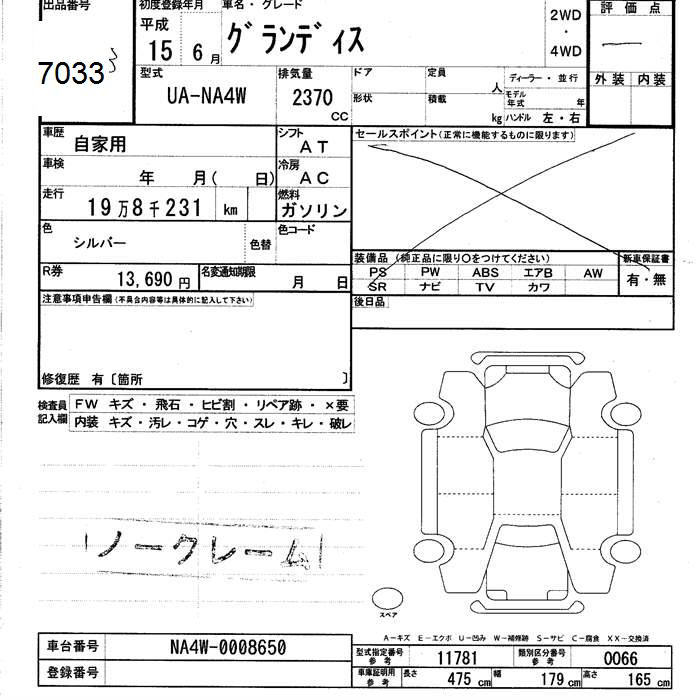 出品番号 初度登録年月 車名・グレード 2WD ・ 4WD 評価点
7033 平成 15 6月 グランディス
外装 内装
型式 UA-NA4W 排気量 2370 CC ドア 定員 人 ディーラー・並行
形状 積載 kg モデル年式 年
ハンドル 左・右
車歴 自家用 シフト AT セールスポイント(正常に機能するものに限ります)
車検 年 月( 日) 冷房 AC
走行 19万8千231 km 燃料 ガソリン
色 シルバー 色替 色コード
装備品(純正品に限り○をつけてください) 新車保証書
PS PW ABS エアB AW 有・無
SR ナビ TV カワ
R券 13,690円 名変通知期限 月 日
後日品
注意事項申告欄(不具合内容等は具体的に記入して下さい)
修復歴 有〔箇所 〕
検査員記入欄 FW キズ・飛石・ヒビ割・リペア跡・×要
内装 キズ・汚レ・コゲ・穴・スレ・キレ・破レ
ノークレーム
スペア
A-キズ E-エクボ U-凹み W-補修跡 S-サビ C-腐食 XX-交換済
車台番号 NA4W-0008650
登録番号
型式指定番号 参考 11781 類別区分番号 参考 0066
車庫証明用 参考 長さ 475cm 幅 179cm 高さ 165cm